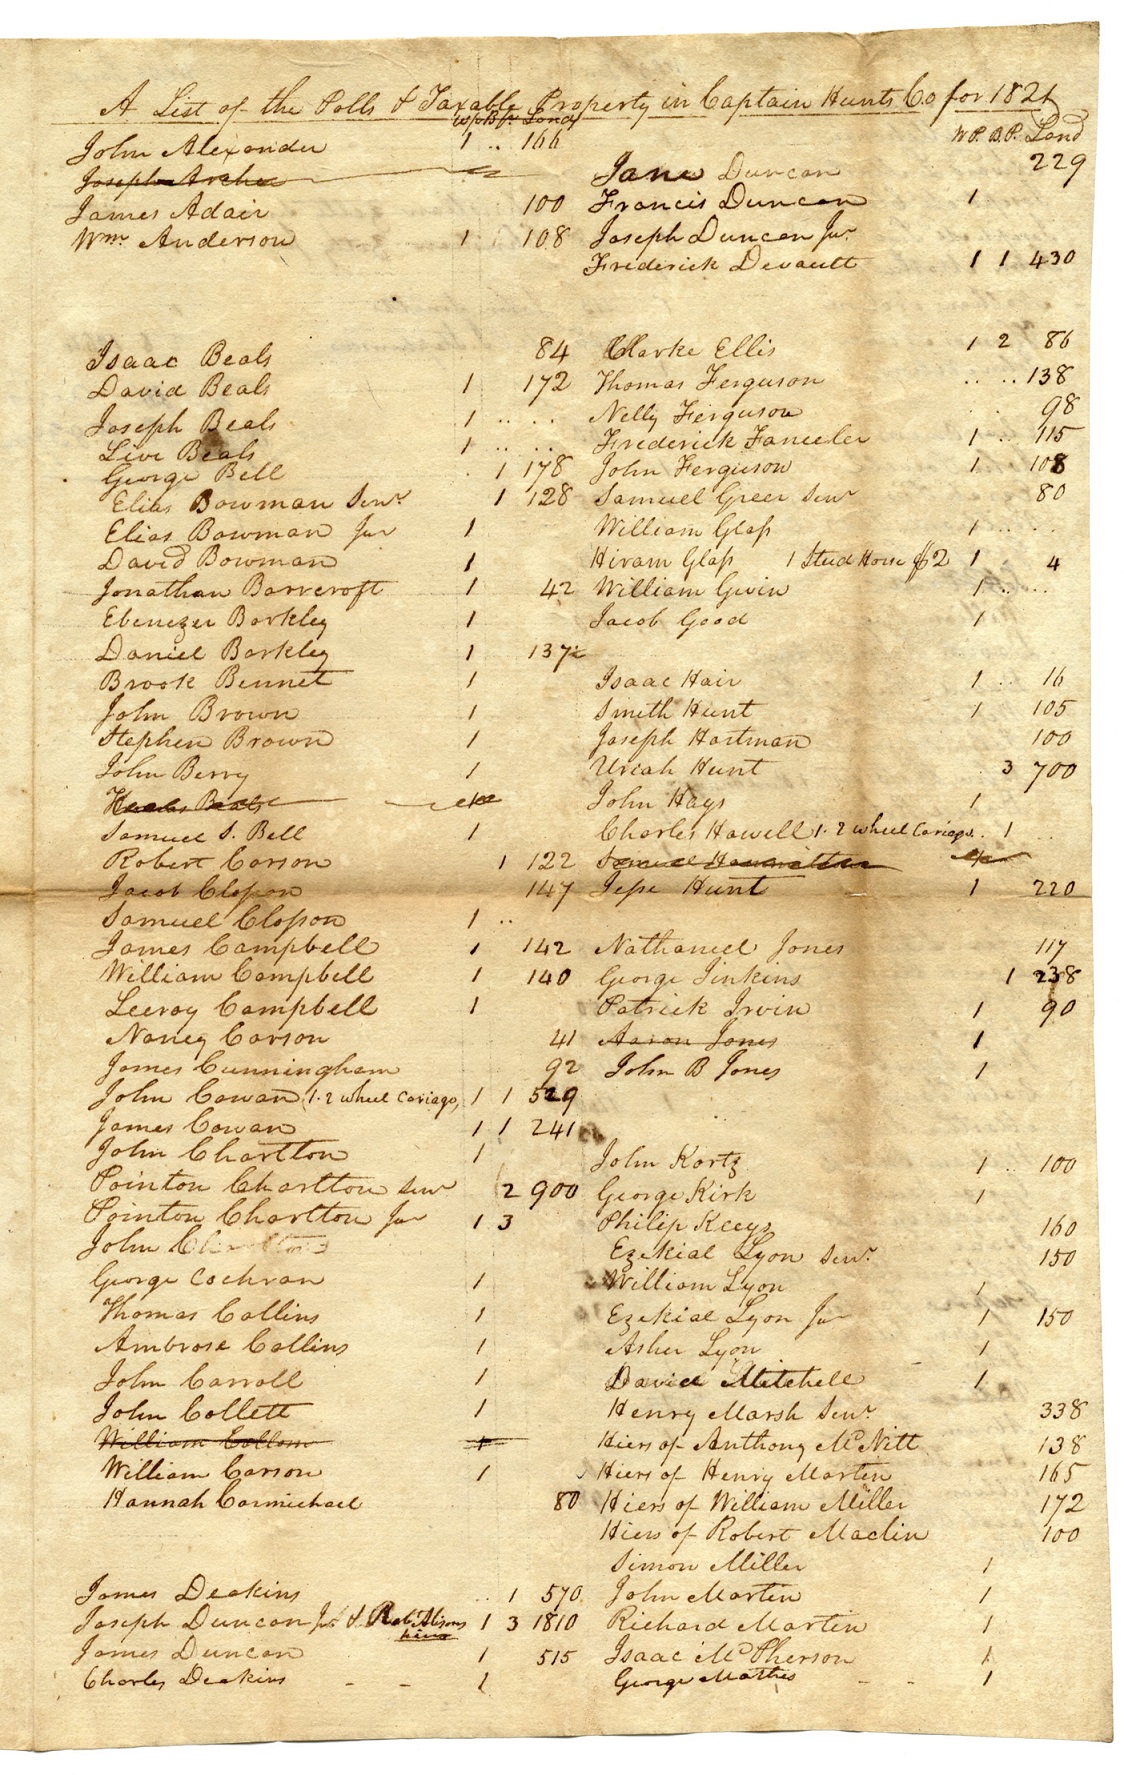 A List of the Polls & Taxable Property in Captain Hunts Co for 1821
W.P. B.P. Land
John Alexander 1 .. 166
Joseph Archer
James Adair 100
Wm. Anderson 1 108
Isaac Beals 84
David Beals 1 172
Joseph Beals 1 .. ..
Live Beals 1 .. ..
George Bell 1 178
Elias Bowman Senr. 1 128
Elias Bowman Jur 1
David Bowman 1
Jonathan Barrcroft 1 42
Ebenezer Barkley 1
Daniel Barkley 1 137
Brook Bennet 1
John Brown 1
Stephen Brown 1
John Berry 1
Beals
Samuel S. Bell 1
Robert Carson 1 122
Jacob Closson 147
Samuel Closson 1 ..
James Campbell 1 142
William Campbell 1 140
Leeroy Campbell 1
Nancy Carson 41
James Cunningham 92
John Cowan (1. 2 wheel Cariage) 1 1 529
James Cowan 1 1 241
John Charlton 1
Pointon Charlton Senr 2 900
Pointon Charlton Jur 1 3
John Charlton
George Cochran 1
Thomas Collins 1
Ambrose Collins 1
John Carroll 1
John Collett 1
William Collom 1
William Carson 1
Hannah Carmichael 80
James Deakins .. 1 570
Joseph Duncan & Rob. Alisons heirs 1 3 1810
James Duncan 1 515
Charles Deakins - - 1
W.P. B.P. Land
Jane Duncan 229
Francis Duncan 1
Joseph Duncan Jur.
Frederick Devault 1 1 430
Clarke Ellis 1 2 86
Thomas Ferguson .. .. 138
Nelly Ferguson 98
Frederick Fanceler 1 .. 115
John Ferguson 1 .. 108
Samuel Greer Senr 80
William Glass 1 .. ..
Hiram Glass 1 Stud Horse $2 1 4
William Gwin 1 .. ..
Jacob Good 1
Isaac Hair 1 .. 16
Smith Hunt 1 105
Joseph Hartman 100
Uriah Hunt 3 700
John Hays 1
Charles Howell 1. 2 wheel Cariage .. 1 ..
Samuel
Jesse Hunt 1 220
Nathaniel Jones 117
George Jinkins 1 238
Patrick Irvin 1 90
Aaron Jones 1
John B Jones 1
John Kortz 1 .. 100
George Kirk 1
Philip Keeys 160
Ezekial Lyon Senr. 150
William Lyon 1
Ezekial Lyon Jur 1 150
Asher Lyon 1
David Mitchell 1
Henry Marsh Senr. 338
Hiers of Anthony McNitt 138
Hiers of Henry Martin 165
Hiers of William Miller 172
Hiers of Robert Maclin 100
Simon Miller 1
John Martin 1
Richard Martin 1
Isaac McPherson 1
George Mathes - - 1